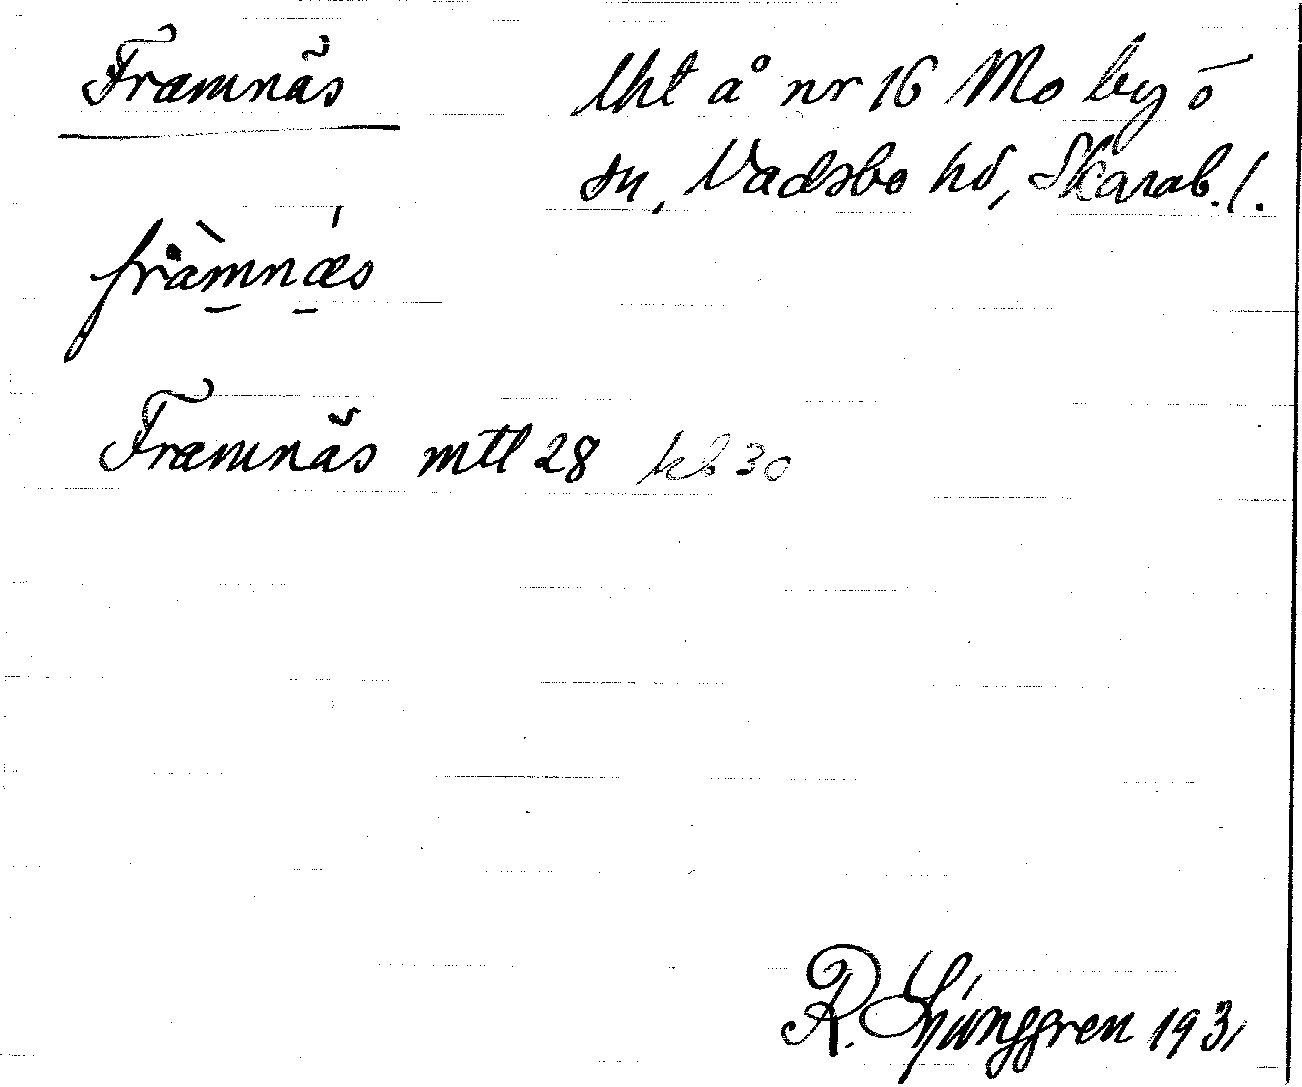 Framnäs
lht å nr 16 Mo by o
sn, Vadsbo hd, Skarab. l.
fràmnæs
Framnäs mtl 28 kb 30
R. Ljunggren 1931